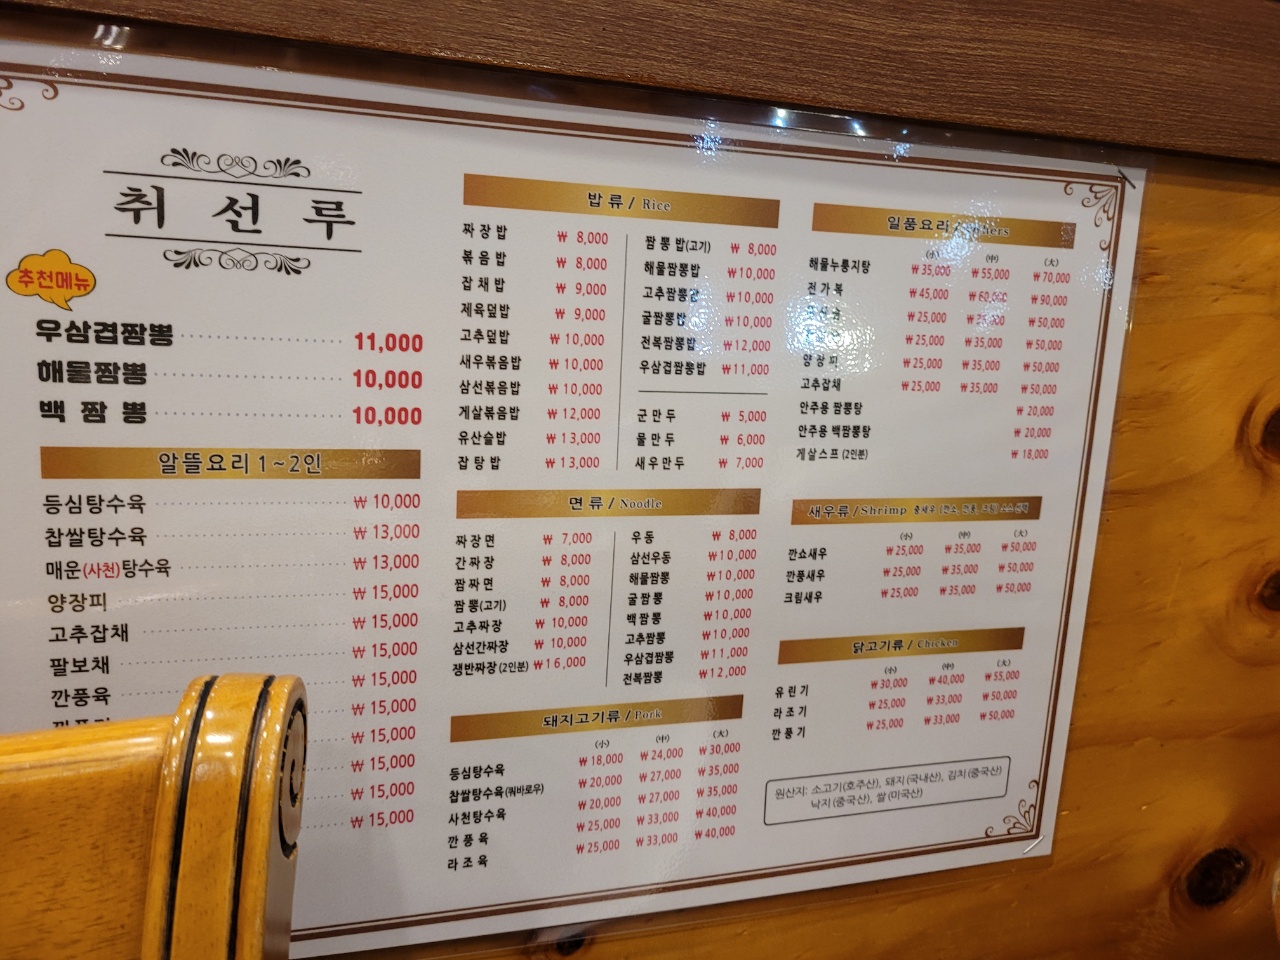 취선루
추천메뉴
우삼겹짬뽕 11,000
해물짬뽕 10,000
백짬뽕 10,000
알뜰요리 1~2인
등심탕수육 ₩10,000
찹쌀탕수육 ₩13,000
매운(사천)탕수육 ₩13,000
양장피 ₩15,000
고추잡채 ₩15,000
팔보채 ₩15,000
깐풍육 ₩15,000
₩15,000
₩15,000
₩15,000
₩15,000
₩15,000
밥류/Rice
짜장밥 ₩8,000
볶음밥 ₩8,000
잡채밥 ₩9,000
제육덮밥 ₩9,000
고추덮밥 ₩10,000
새우볶음밥 ₩10,000
삼선볶음밥 ₩10,000
게살볶음밥 ₩12,000
유산슬밥 ₩13,000
잡탕밥 ₩13,000
짬뽕밥(고기) ₩8,000
해물짬뽕밥 ₩10,000
고추짬뽕밥 ₩10,000
굴짬뽕밥 ₩10,000
전복짬뽕밥 ₩12,000
우삼겹짬뽕밥 ₩11,000
군만두 ₩5,000
물만두 ₩6,000
새우만두 ₩7,000
면류/Noodle
짜장면 ₩7,000
간짜장 ₩8,000
짬짜면 ₩8,000
짬뽕(고기) ₩8,000
고추짜장 ₩10,000
삼선간짜장 ₩10,000
쟁반짜장(2인분) ₩16,000
우동 ₩8,000
삼선우동 ₩10,000
해물짬뽕 ₩10,000
굴짬뽕 ₩10,000
백짬뽕 ₩10,000
고추짬뽕 ₩10,000
우삼겹짬뽕 ₩11,000
전복짬뽕 ₩12,000
돼지고기류/Pork
(小) (中) (大)
등심탕수육 ₩18,000 ₩24,000 ₩30,000
찹쌀탕수육(꿔바로우) ₩20,000 ₩27,000 ₩35,000
사천탕수육 ₩20,000 ₩27,000 ₩35,000
깐풍육 ₩25,000 ₩33,000 ₩40,000
라조육 ₩25,000 ₩33,000 ₩40,000
일품요리/Others
(小) (中) (大)
해물누룽지탕 ₩35,000 ₩55,000 ₩70,000
전가복 ₩45,000 ₩60,000 ₩90,000
₩25,000 ₩35,000 ₩50,000
₩25,000 ₩35,000 ₩50,000
양장피 ₩25,000 ₩35,000 ₩50,000
고추잡채 ₩25,000 ₩35,000 ₩50,000
안주용 짬뽕탕 ₩20,000
안주용 백짬뽕탕 ₩20,000
게살스프(2인분) ₩18,000
새우류/Shrimp 중새우
(小) (中) (大)
깐쇼새우 ₩25,000 ₩35,000 ₩50,000
깐풍새우 ₩25,000 ₩35,000 ₩50,000
크림새우 ₩25,000 ₩35,000 ₩50,000
닭고기류/Chicken
(小) (中) (大)
유린기 ₩30,000 ₩40,000 ₩55,000
라조기 ₩25,000 ₩33,000 ₩50,000
깐풍기 ₩25,000 ₩33,000 ₩50,000
원산지: 소고기(호주산), 돼지(국내산), 김치(중국산)
낙지(중국산), 쌀(미국산)